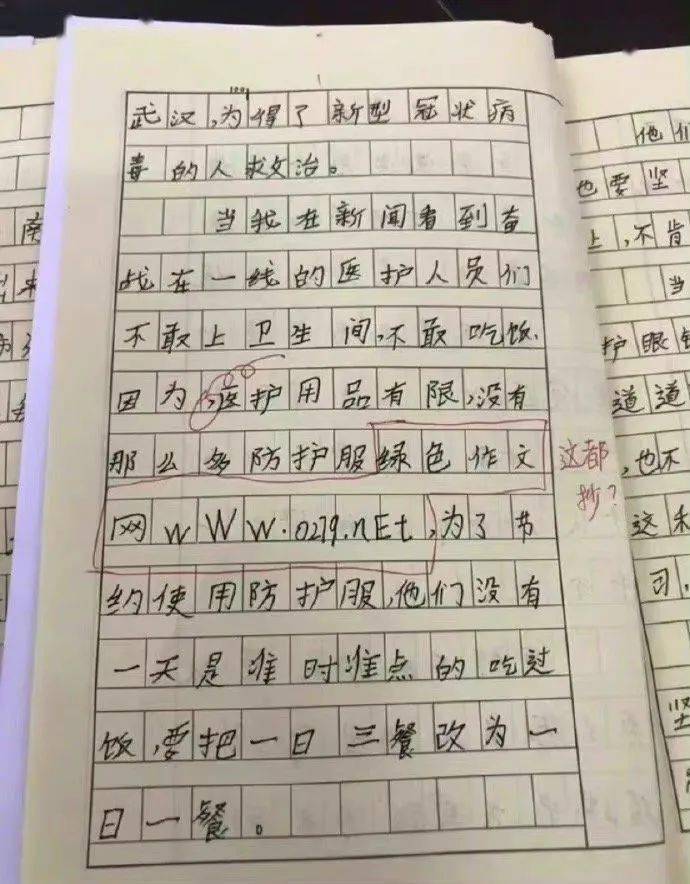 武汉,为得了新型冠状病
毒的人求治。
当我在新闻看到奋
战在一线的医护人员们
不敢上卫生间,不敢吃饭.
因为,医护用品有限,没有
那么多防护服绿色作文
网wWw.0279.nEt,为了节
约使用防护服,他们没有
一天是准时准点的吃过
饭,要把一日三餐改为一
日一餐。
这都
抄?
他们
也要坚
上,不肯
当
护眼镜
道道
,也不
这和
习.
坚
南